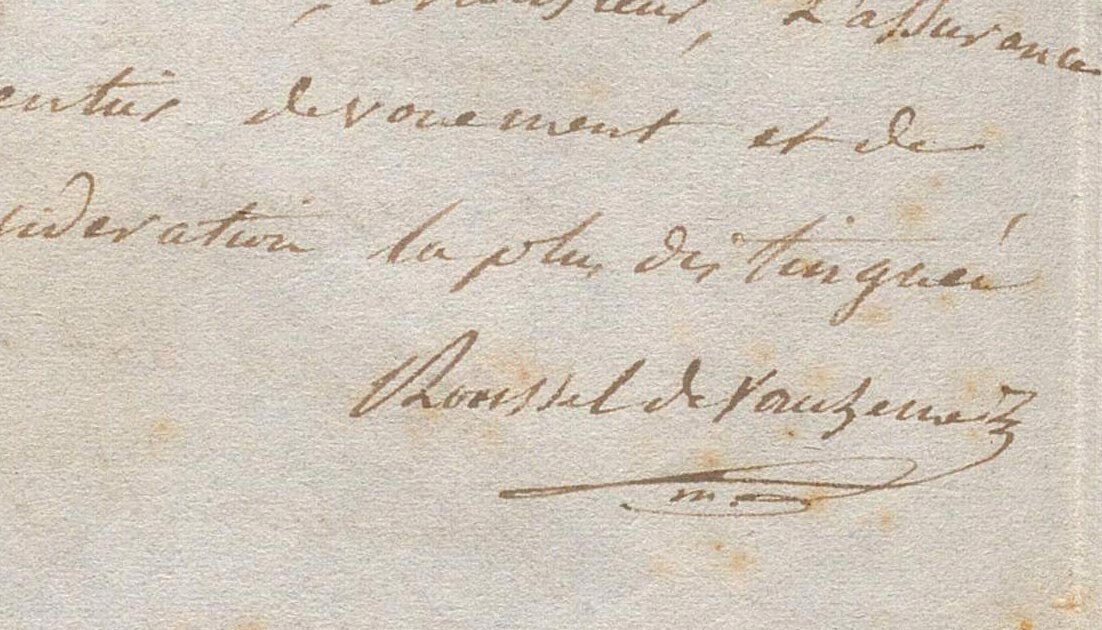 Monsieur, L'assurance
entier devouement et de
sideration la plus distinguée
Roussel de Vauzemez
m.